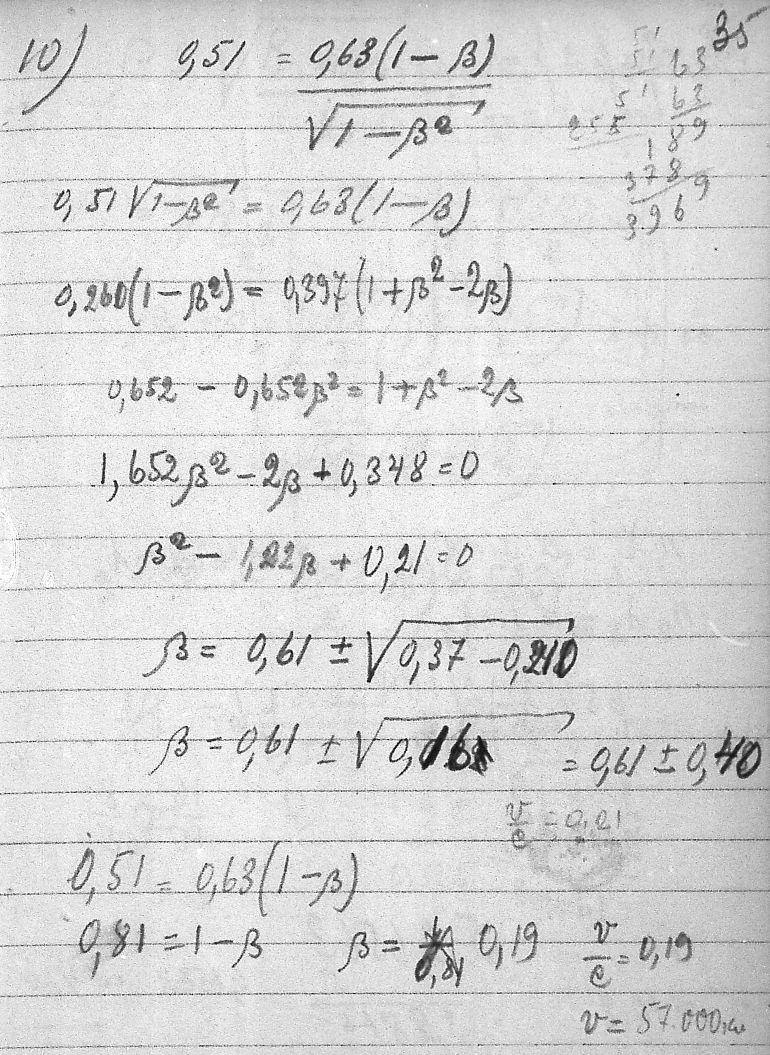 35
10) 0,51 = 0,63(1-β)
√1-β²
51 63
51 63
51 189
255 378
3969
0,51√1-β² = 0,63(1-β)
0,260(1-β²) = 0,397(1+β²-2β)
0,652 - 0,652β² = 1+β²-2β
1,652β²-2β+0,348=0
β²-1,22β+0,21=0
β = 0,61 ± √0,37-0,210
β = 0,61 ± √0,16 = 0,61 ± 0,40
v/c = 0,21
0,51 = 0,63(1-β)
0,81 = 1-β β = 0,19 v/c = 0,19
v = 57.000